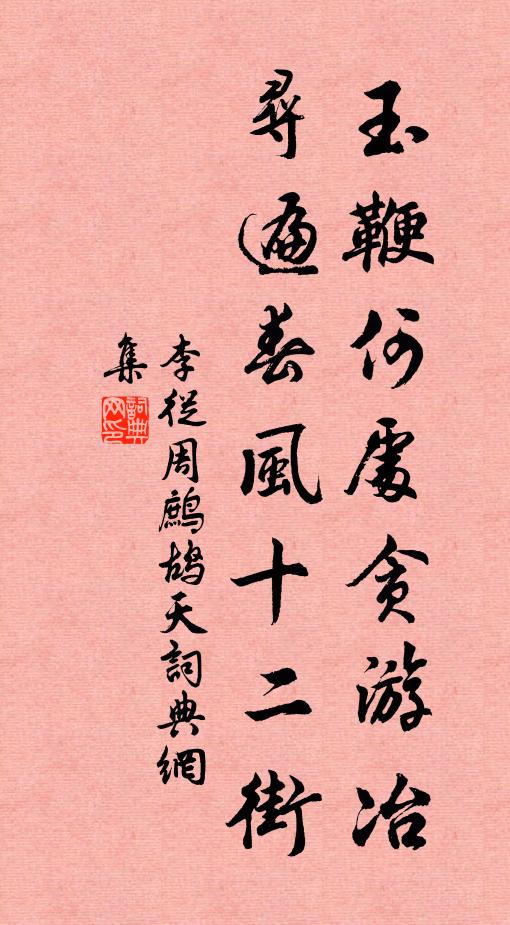 玉鞭何處貪游冶
尋遍春風十二街
李從周鷓鴣天詞典網
集
詞典
网印